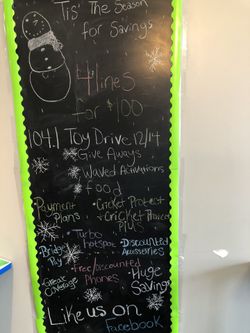 Tis' The Season
for Savings
4 lines
for $100
104.1 Toy Drive 12/14
Give Aways
Waved Activations
food
Payment Plans
• Cricket Protect
• Cricket Protect Plus
• Turbo hotspot
• Discounted Accessories
• Bridge Pay
• free/discounted Phones
• Huge Savings
• Great Coverage
Like us on
facebook